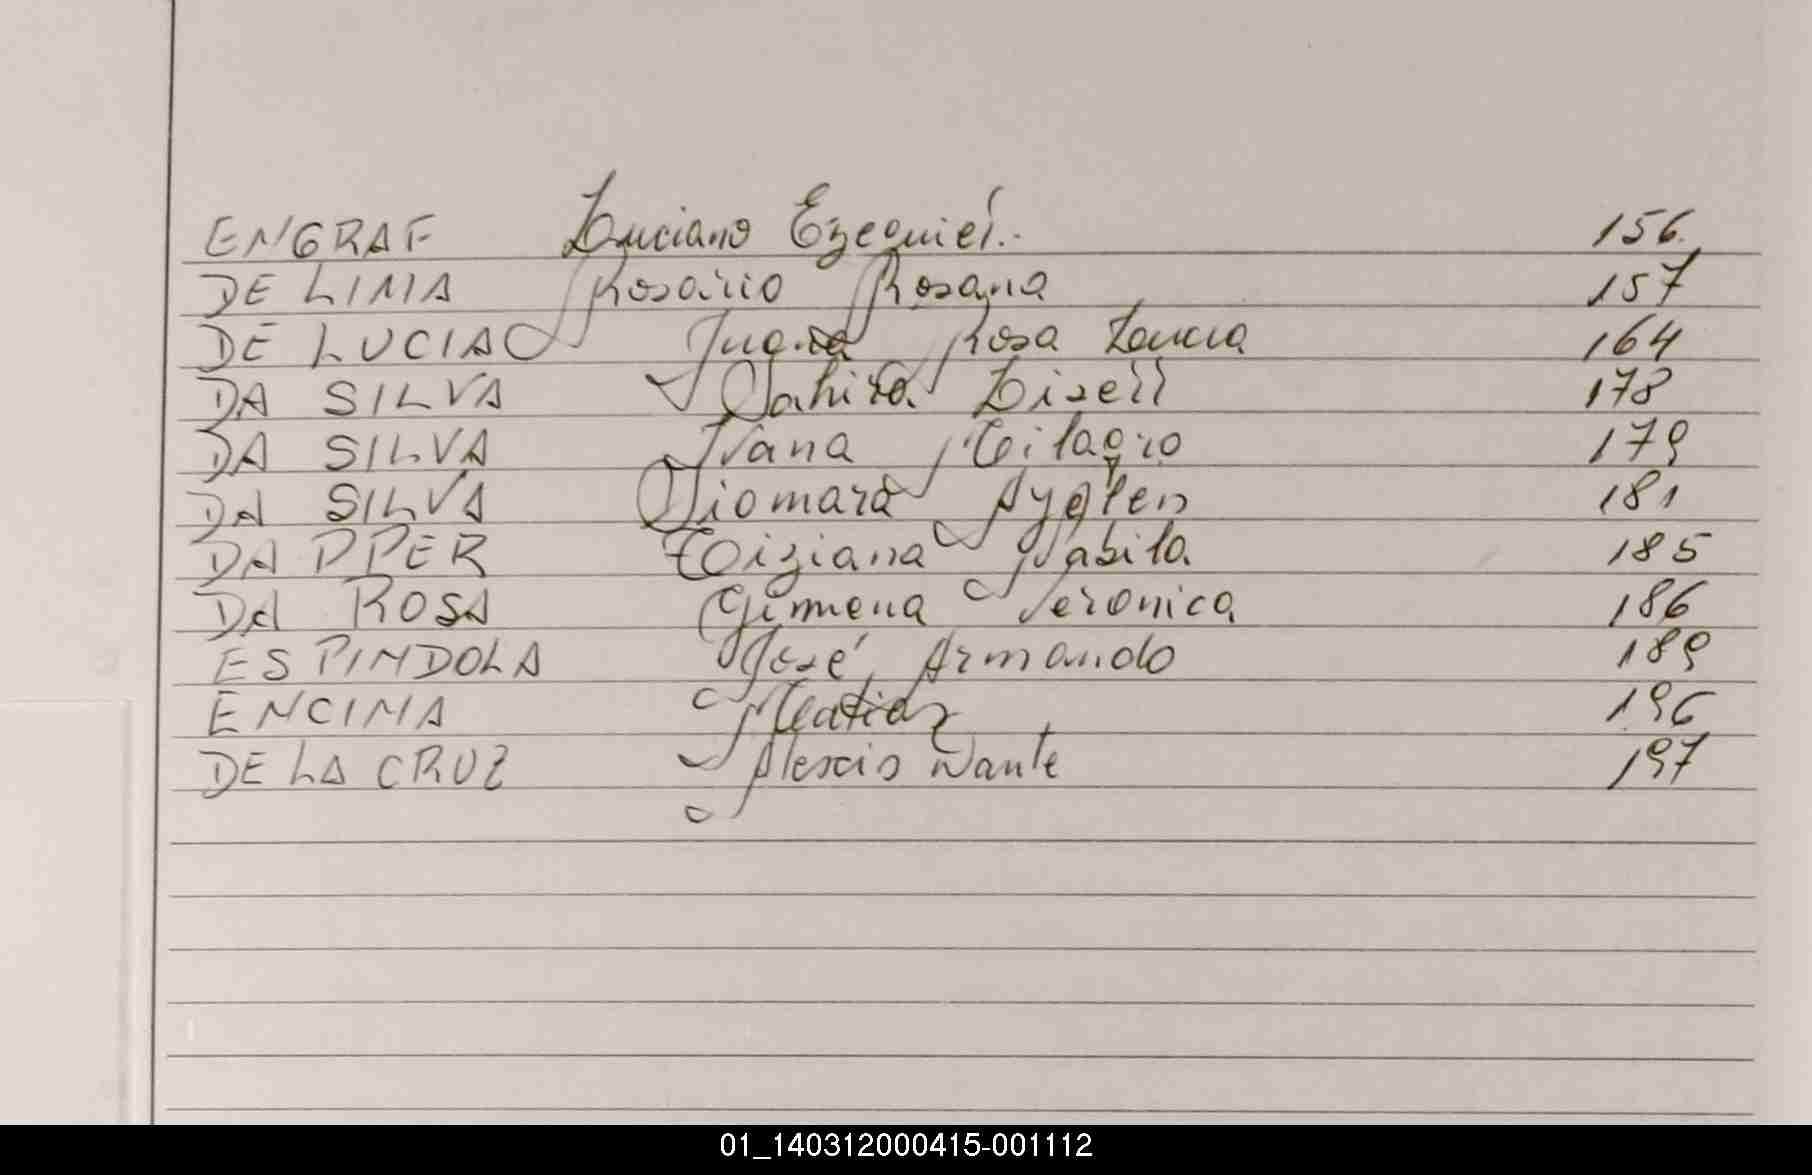 ENGRAF Luciano Ezequiel.. 156.
DE LIMA Rosario Rosana 157
DE LUCIA Juana Rosa Lucia 164
DA SILVA Sahira Lisell 178
DA SILVA Ivana Milagro 179
DA SILVA Xiomara Aygлen 181
DAPPER Tiziana Sabila 185
DA ROSA Gimena Veronica 186
ESPINDOLA José Armando 189
ENCINA Matias 196
DE LA CRUZ Alexis Dante 197
01_140312000415-001112